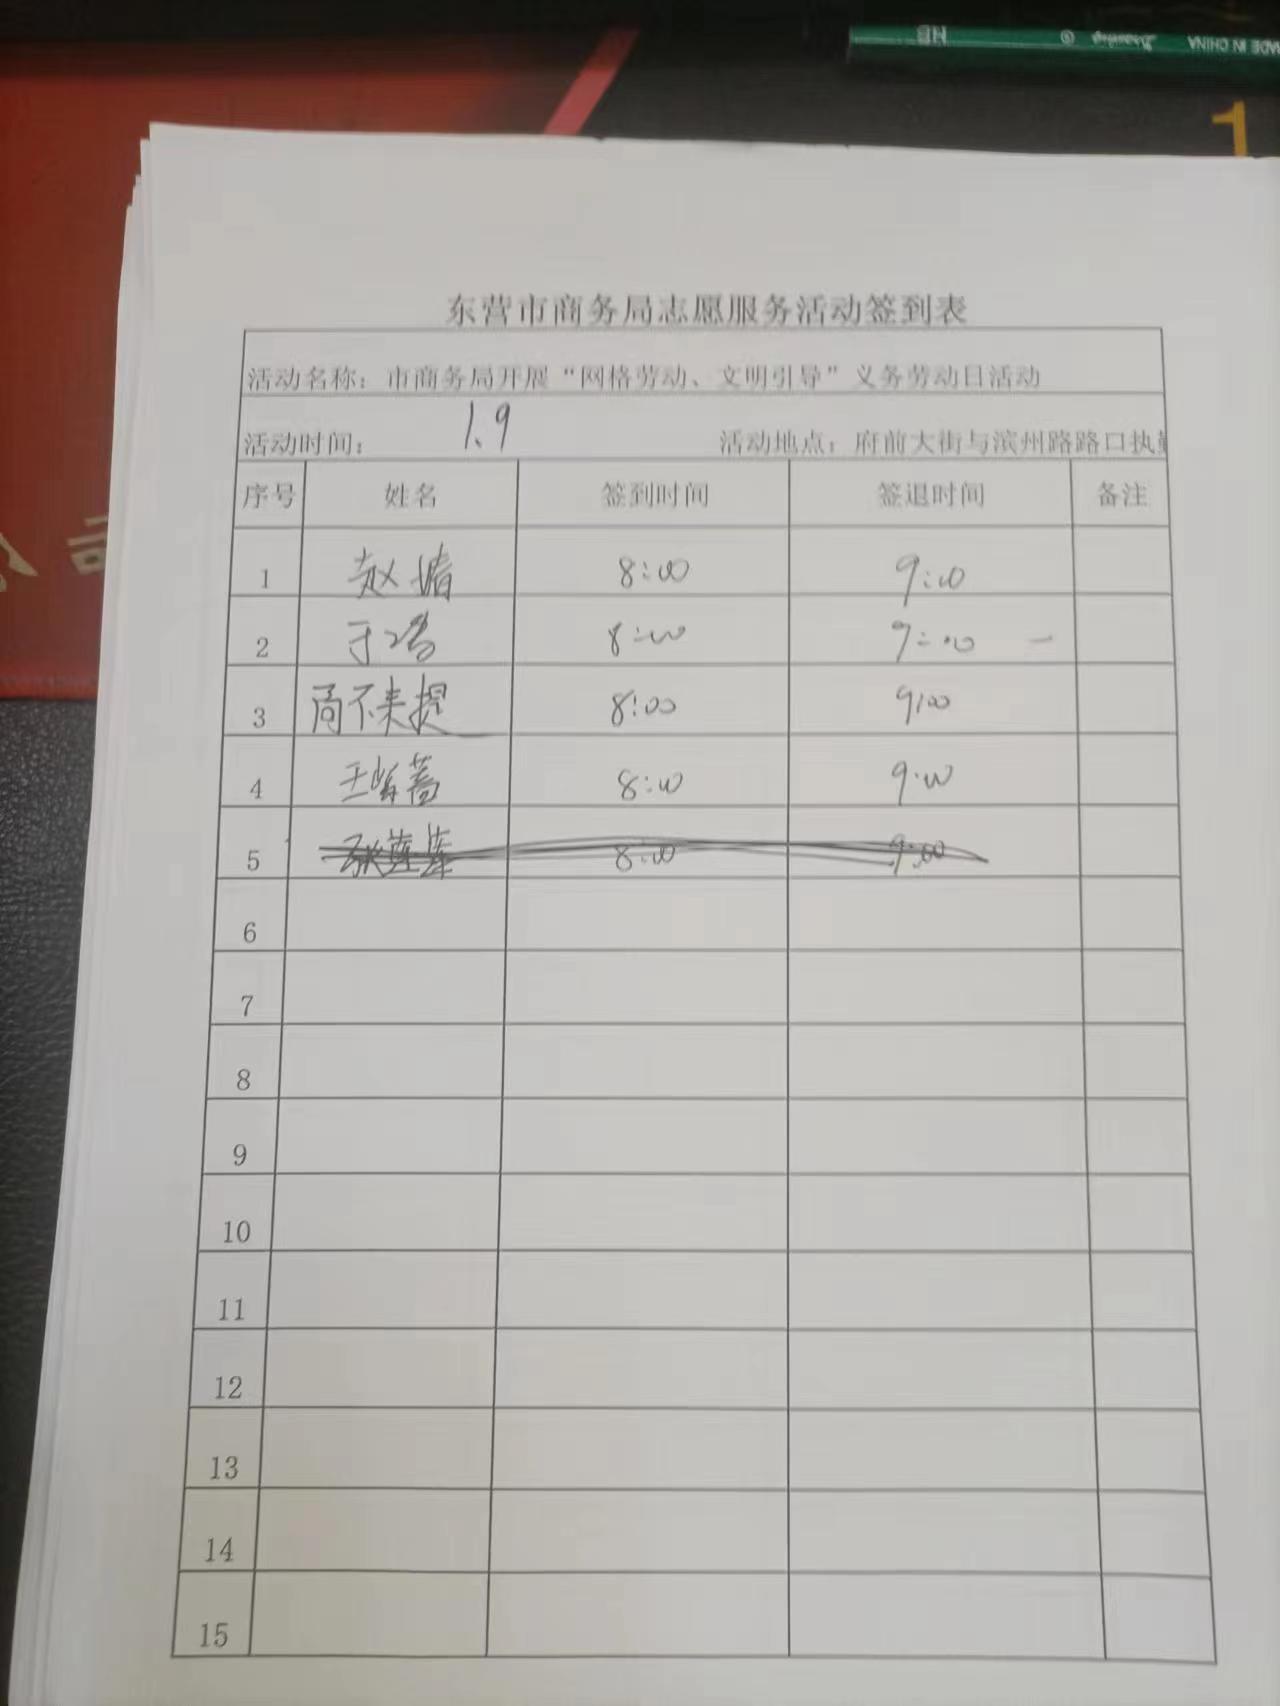 HB
MADE IN CHINA
1
司
东营市商务局志愿服务活动签到表
活动名称：市商务局开展“网格劳动、文明引导”义务劳动日活动
活动时间： 1.9 活动地点：府前大街与滨州路路口执勤
序号 姓名 签到时间 签退时间 备注
1 赵婧 8:00 9:00
2 于 8:00 9:00
3 8:00 9:00
4 王 8:00 9:00
5 张莲莲 8:00 9:00
6
7
8
9
10
11
12
13
14
15